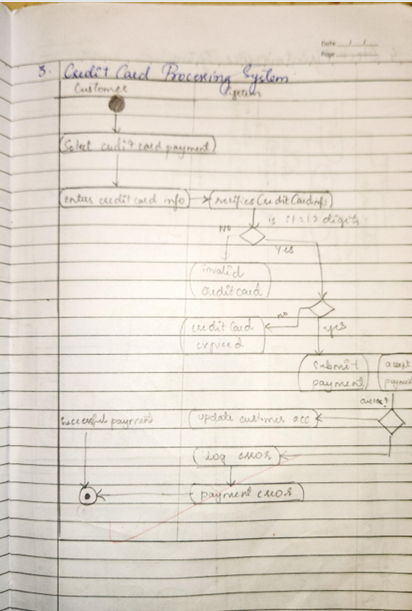 Date / /
Page
3. Credit Card Processing System
Customer System
Select credit card payment
enter credit card info
verifies Credit Card info
is it 12 digits
NO
Yes
invalid
credit card
no
yes
credit Card
expired
submit
payment
accept
error?
Successful payment
update customer acc
Log error
payment error